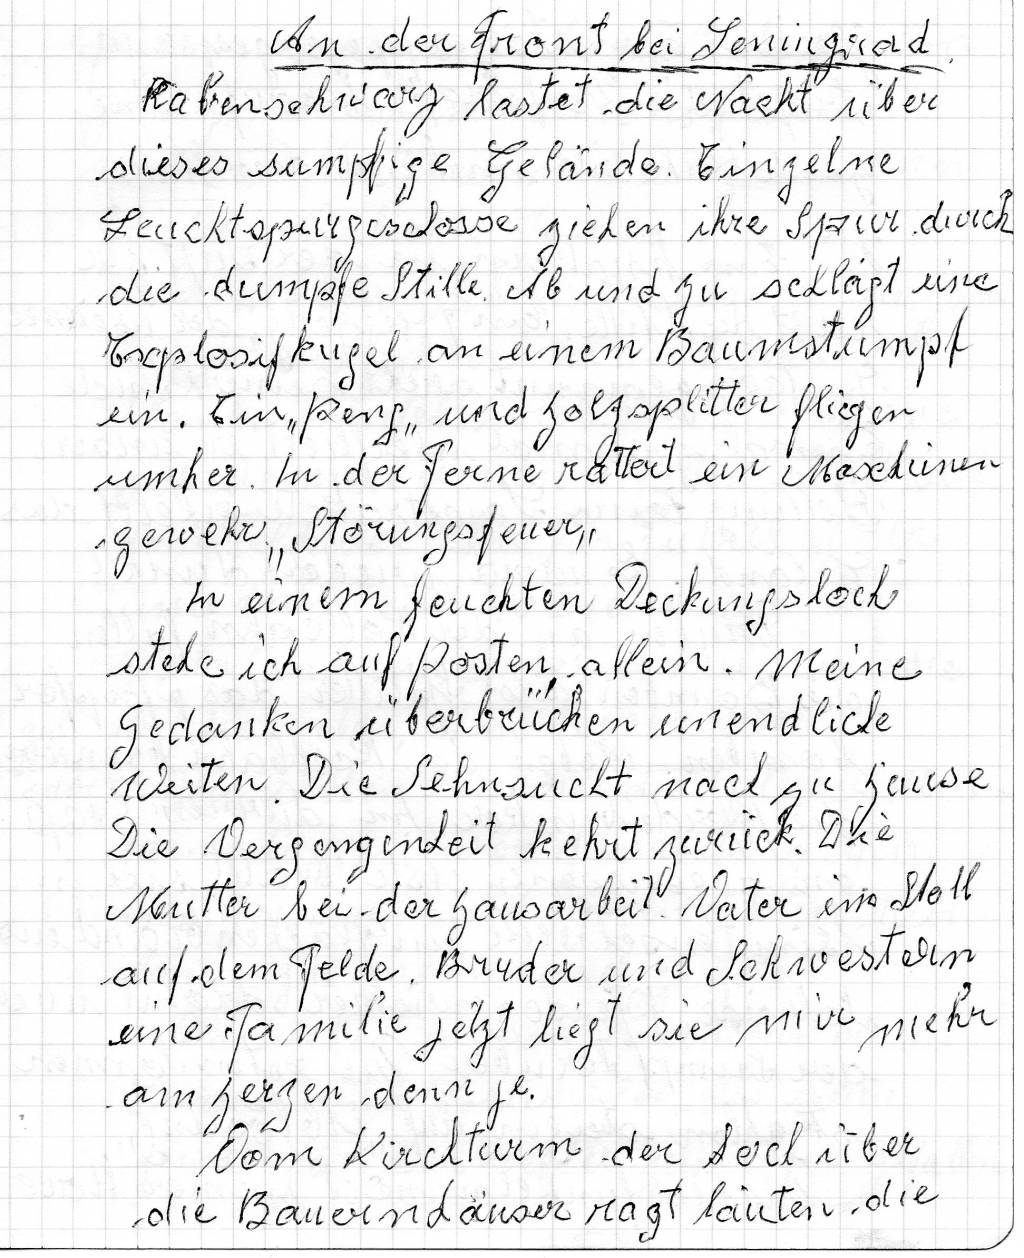 An der Front bei Leningrad
Rabenschwarz lastet die Nacht über
dieses sumpfige Gelände. Einzelne
Leuchtspurgeschosse ziehen ihre Spur durch
die dumpfe Stille. Ab und zu schlägt eine
Explosifkugel an einem Baumstumpf
ein. Ein „Peng„ und Holzsplitter fliegen
umher. In der Ferne rattert ein Maschinen
gewehr „Störungsfeuer„
In einem feuchten Deckungsloch
stehe ich auf Posten, allein. Meine
Gedanken überbrücken unendliche
Weiten. Die Sehnsucht nach zu Hause
Die Vergangenheit kehrt zurück. Die
Mutter bei der Hausarbeit. Vater im Stall
auf dem Felde. Bruder und Schwestern
eine Familie jetzt liegt sie mir mehr
am Herzen denn je.
Vom Kirchturm der hoch über
die Bauernhäuser ragt läuten die